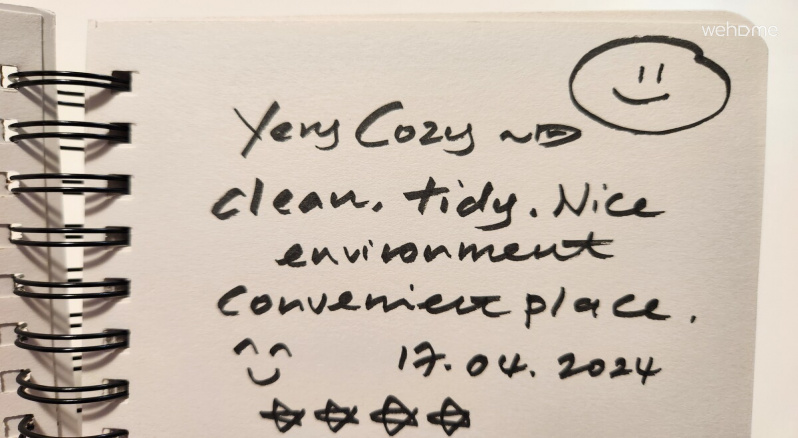 wehome
Very Cozy ~
clean. tidy. Nice
environment
convenient place.
17.04.2024